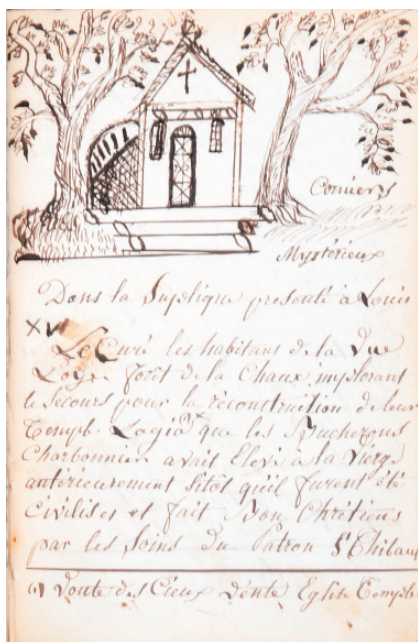 Corniers
Mystérieux
Dans la Suplique presenté à Louis
XVI
Le Curé les habitans de la Vue
Loge forêt de la Chaux, implorant
le Secours pour la réconstruction de leur
Temple Logia que les Bucherons
Charbonnier avait Elevé à la Vierge
antérieurement sitôt qu'il furent été
Civilisés et fait Bon Chrétiens
par les Soins du Patron St Thibaud
(1) Voute des Cieux Vente Eglise Temple